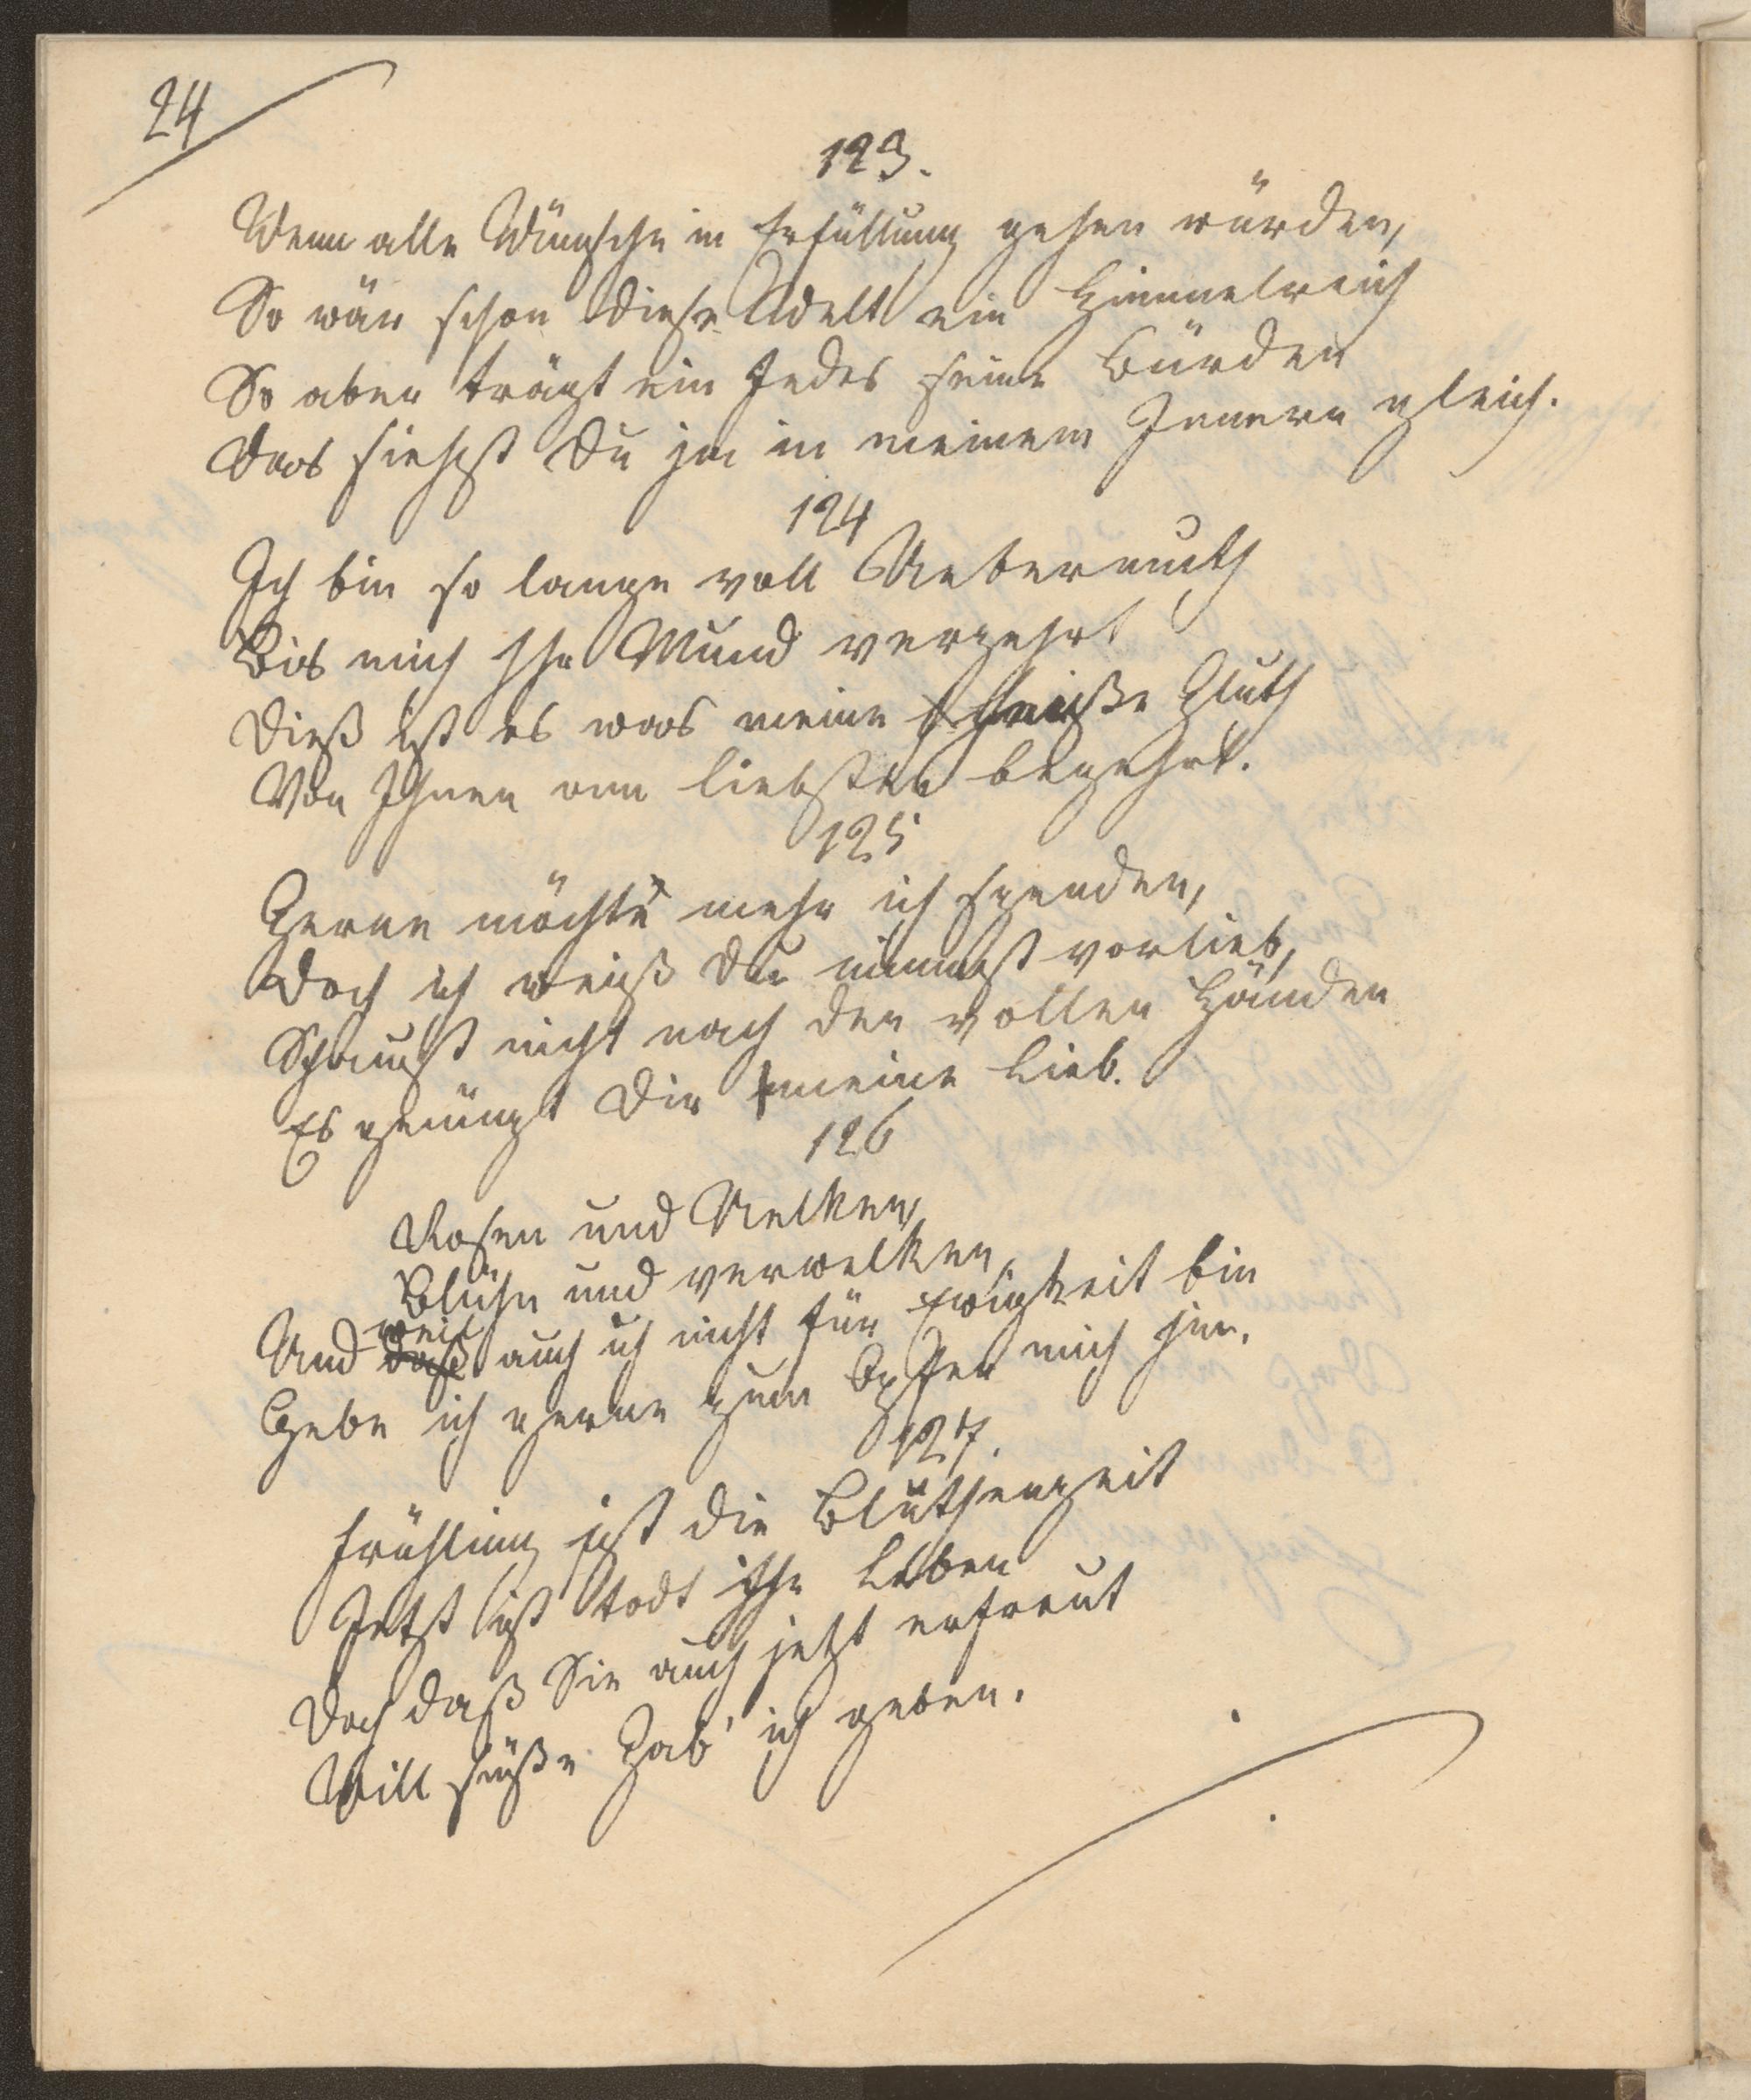 24
123.
Wenn alle Wünsche in Erfüllung gehen würden,
So wär schon diese Welt ein Himmelreich
So aber trägt ein Jedes seine Bürden
Das siehst Du ja in meinem Innern gleich.
124
Ich bin so lange voll Uebermuth
Bis mich Ihr Mund verzehrt
Dieß ist es was meine heiße Gluth
Von Ihnen am liebsten begehrt.
125
Gerne möchte mehr ich spenden,
Doch ich weiß Du nimmst vorlieb,
Schaust nicht nach den vollen Händen
Es genügt Dir meine Lieb.
126
Rosen und Nelken
Blühn und verwelken,
weil
Und daß auch ich nicht für Ewigkeit bin
Gebe ich gerne zum Opfer mich hin.
127.
Frühling ist die Blüthenzeit
Jetzt ist todt ihr Leben
Doch daß Sie auch jetzt erfreut
Will süße Gab' ich geben.